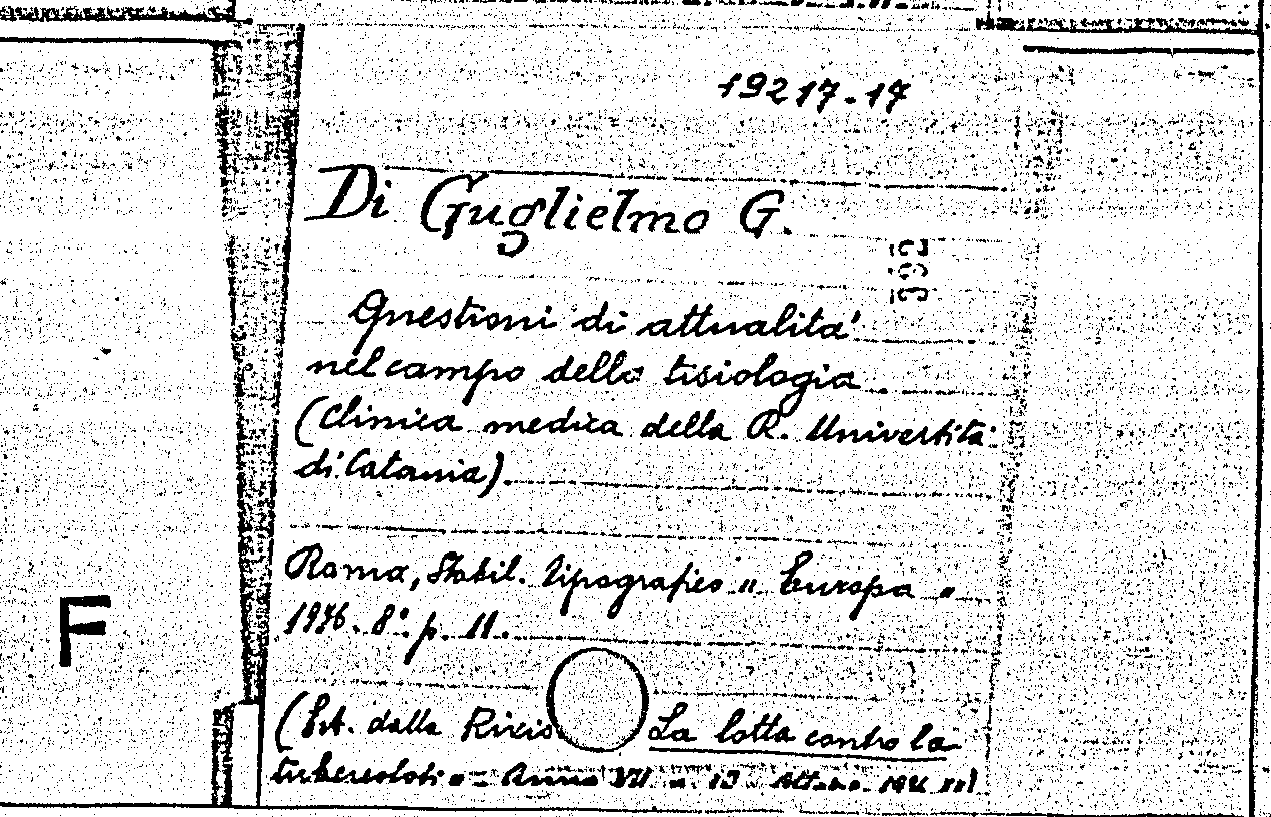 19217.17
Di Guglielmo G.
392
Questioni di attualità
nel campo della tisiologia.
(Clinica medica della R. Università
di Catania).
Roma, Stabil. tipografico "Europa"
8°. p. 11.
F
(Est. dalla Rivis La lotta contro la
tubercolosi - Anno VII n. 10